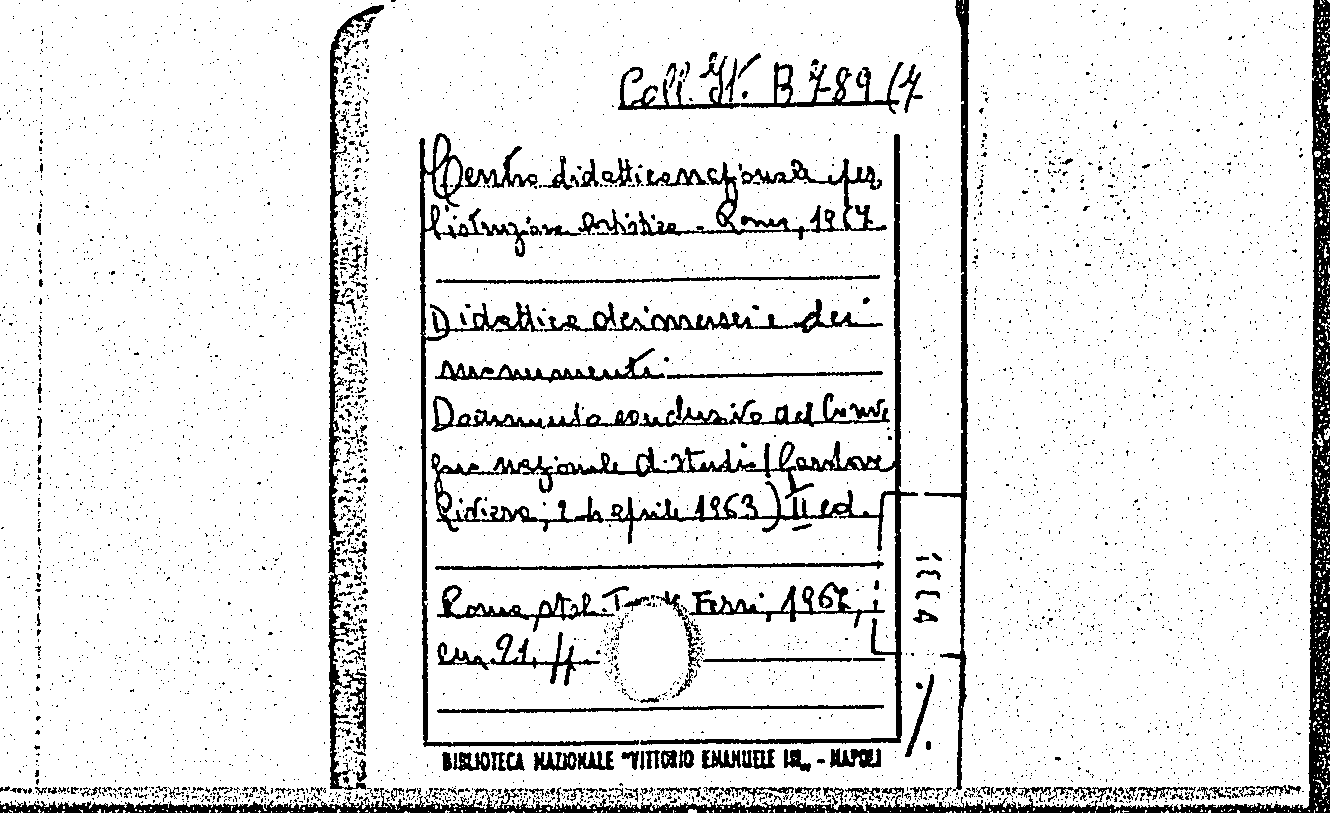 Coll. It. B 789 (7
Centro didattico nazionale per
l'istruzione artistica - Roma, 1967
Didattica dei musei e dei
monumenti
Documento conclusivo del Conve
gno nazionale di Studi (Gardone
Riviera, 2-4 aprile 1963) II ed.
Roma, stab. Ferri, 1967,
cm. 21, ff.
BIBLIOTECA NAZIONALE "VITTORIO EMANUELE III„ - NAPOLI